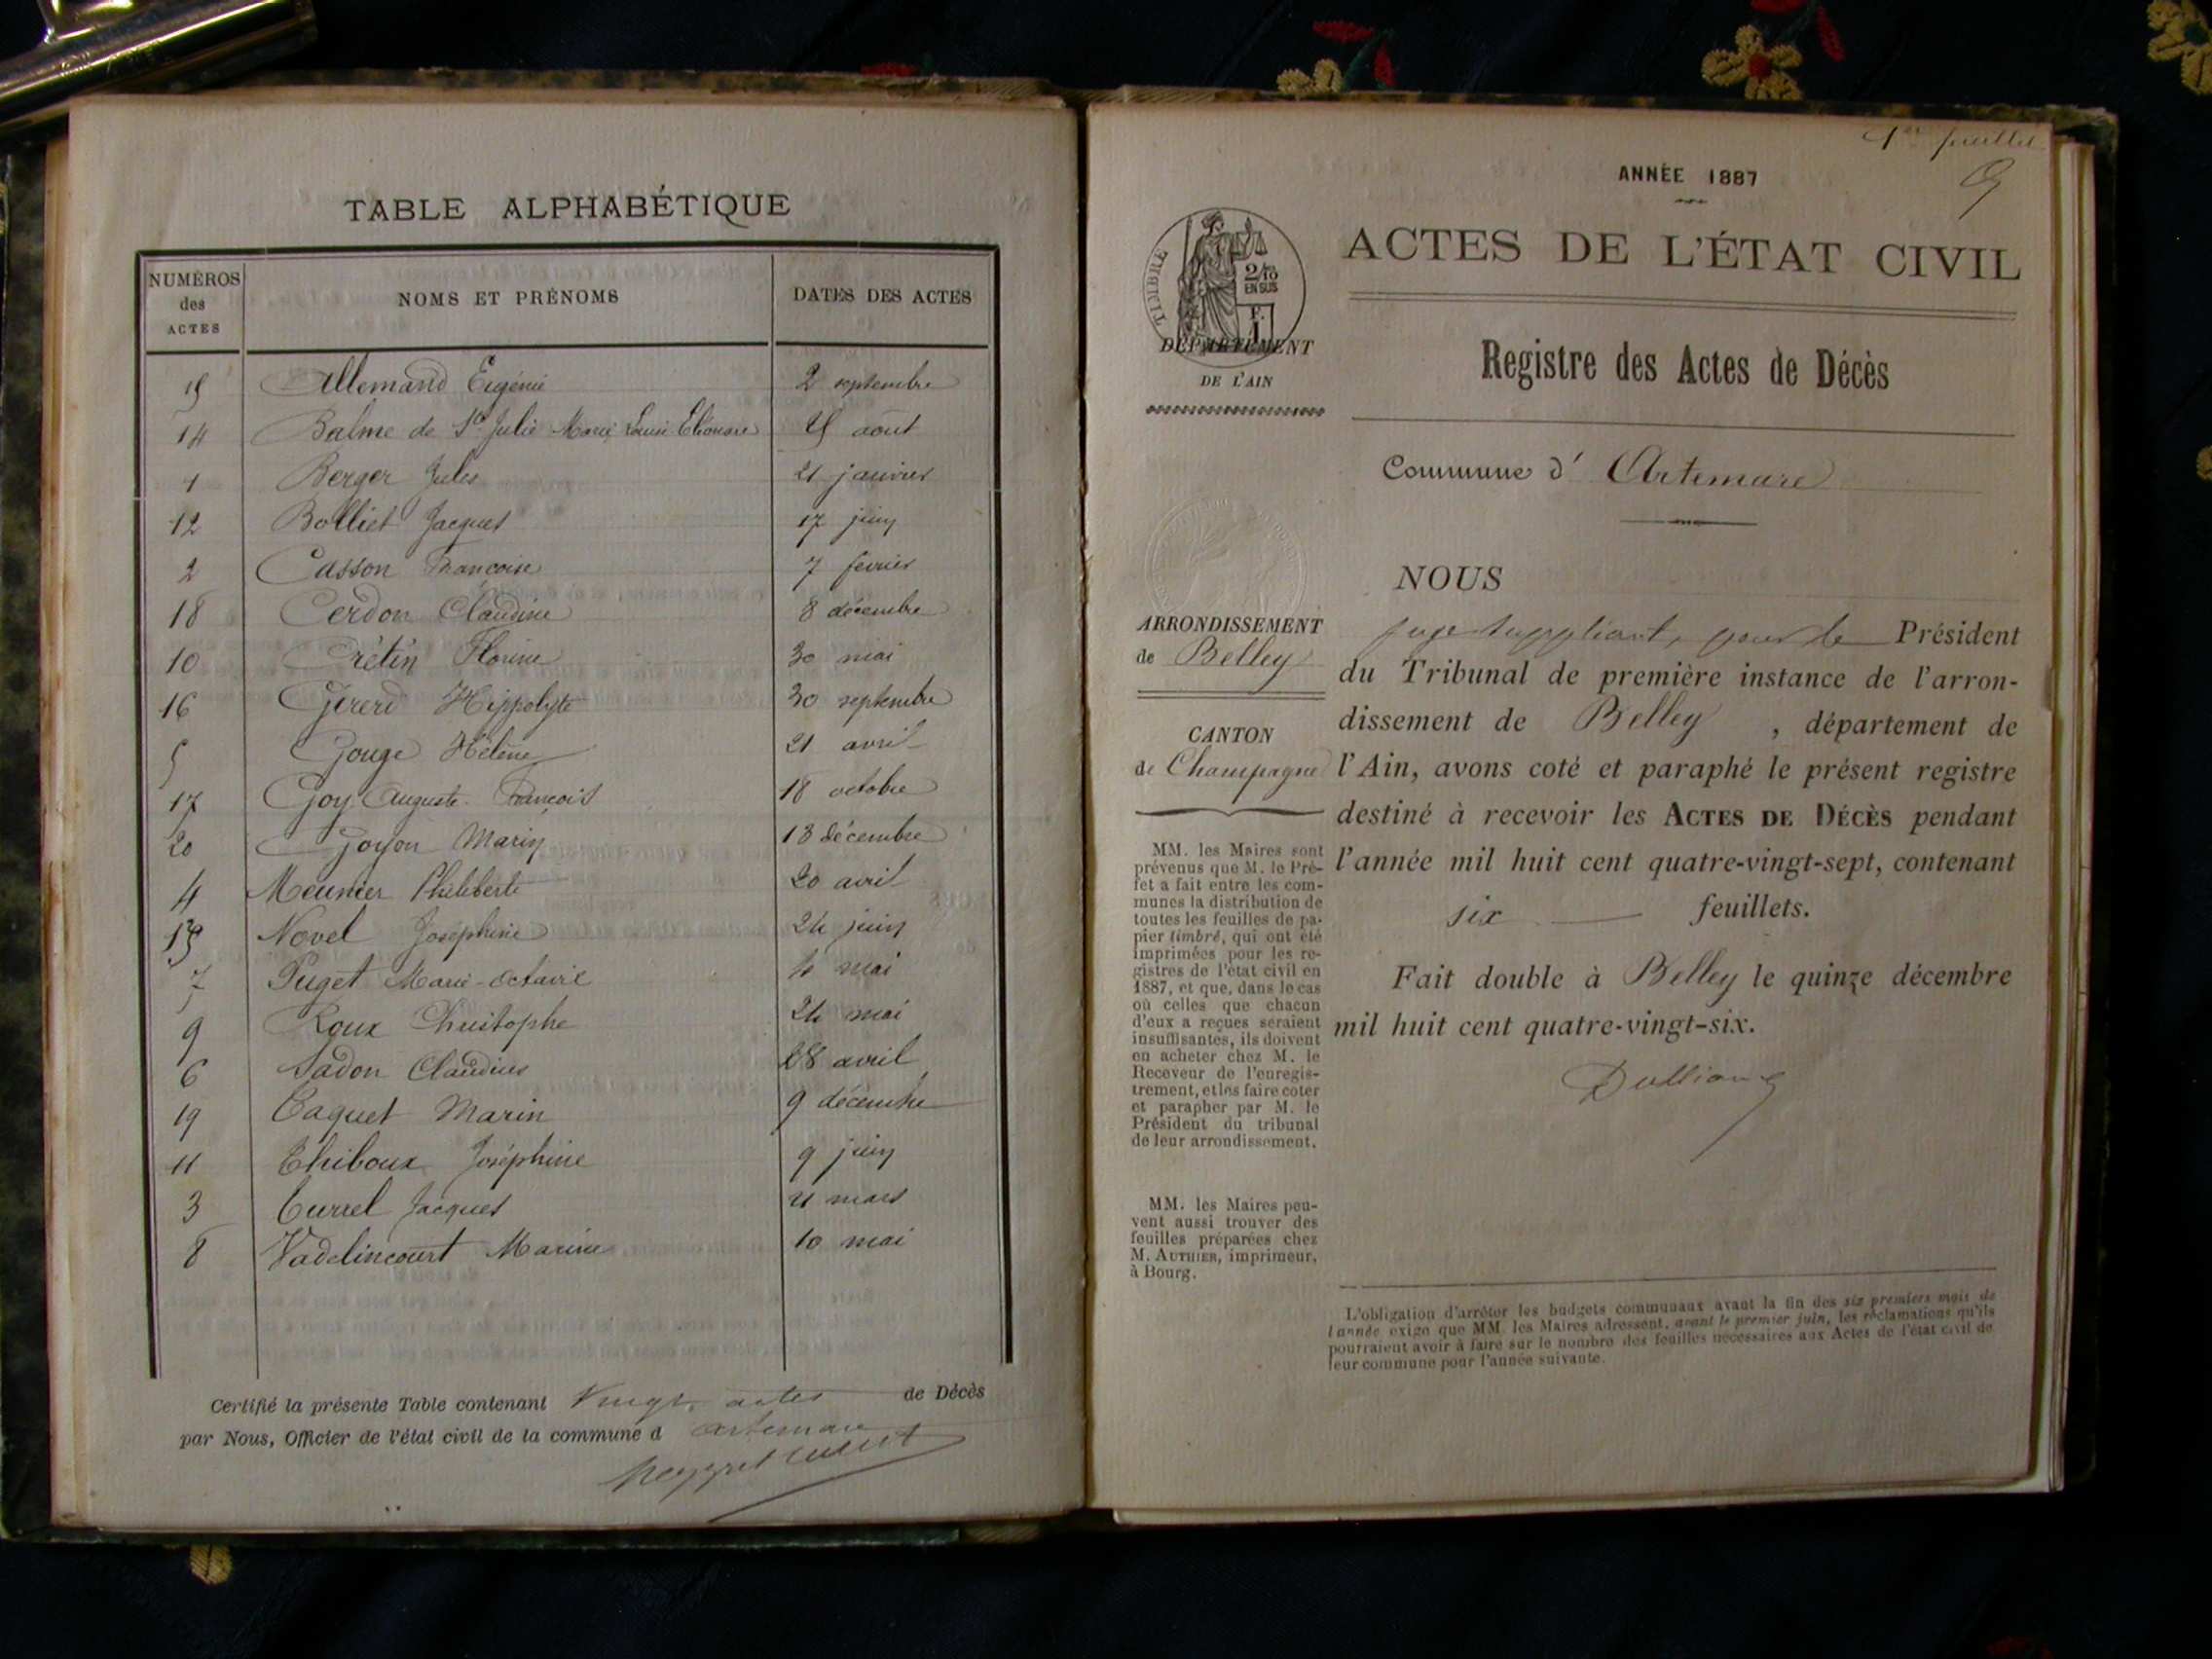 TABLE ALPHABÉTIQUE
NUMÉROS des ACTES NOMS ET PRÉNOMS DATES DES ACTES
15 Allemand Eugénie 2 septembre
14 Balme de Ste Julie Marie Louise Eléonore août
1 Berger Jules 21 janvier
12 Bolliet Jacques 17 juin
2 Casson Francoise 7 fevrier
18 Cerdon Claudine 8 décembre
10 Crétin Florine 30 mai
16 Gererd Hippolyte 30 septembre
5 Gouge Hélène 21 avril
17 Goy Auguste François 18 octobre
20 Goyon Marin 13 décembre
4 Meunier Philiberte 20 avril
13 Novel Joséphine 24 juin
7 Puget Marie-Octavie 4 mai
9 Roux Christophe 24 mai
6 Sadon Claudius 28 avril
19 Taquet Marin 9 décembre
11 Thiboux Joséphine 9 juin
3 Turrel Jacques 21 mars
8 Vadelincourt Marine 10 mai
Certifié la présente Table contenant Vingt actes de Décès
par Nous, Officier de l'état civil de la commune d Artemare
1er feuillet
ANNÉE 1887
ACTES DE L'ÉTAT CIVIL
TIMBRE
2/10
EN SUS
DÉPARTEMENT
DE L'AIN
Registre des Actes de Décès
Commune d' Artemare
NOUS
ARRONDISSEMENT
de Belley
CANTON
de Champagne
juge suppléant, pour le Président
du Tribunal de première instance de l'arron-
dissement de Belley, département de
l'Ain, avons coté et paraphé le présent registre
destiné à recevoir les ACTES DE DÉCÈS pendant
l'année mil huit cent quatre-vingt-sept, contenant
six feuillets.
Fait double à Belley le quinze décembre
mil huit cent quatre-vingt-six.
MM. les Maires sont
prévenus que M. le Pré-
fet a fait entre les com-
munes la distribution de
toutes les feuilles de pa-
pier timbré, qui ont été
imprimées pour les re-
gistres de l'état civil en
1887, et que, dans le cas
où celles que chacun
d'eux a reçues seraient
insuffisantes, ils doivent
en acheter chez M. le
Receveur de l'enregis-
trement, et les faire coter
et parapher par M. le
Président du tribunal
de leur arrondissement.
MM. les Maires peu-
vent aussi trouver des
feuilles préparées chez
M. AUTHIER, imprimeur,
à Bourg.
L'obligation d'arrêter les budgets communaux avant la fin des six premiers mois de
l'année exige que MM. les Maires adressent, avant le premier juin, les réclamations qu'ils
pourraient avoir à faire sur le nombre des feuilles nécessaires aux Actes de l'état civil de
leur commune pour l'année suivante.